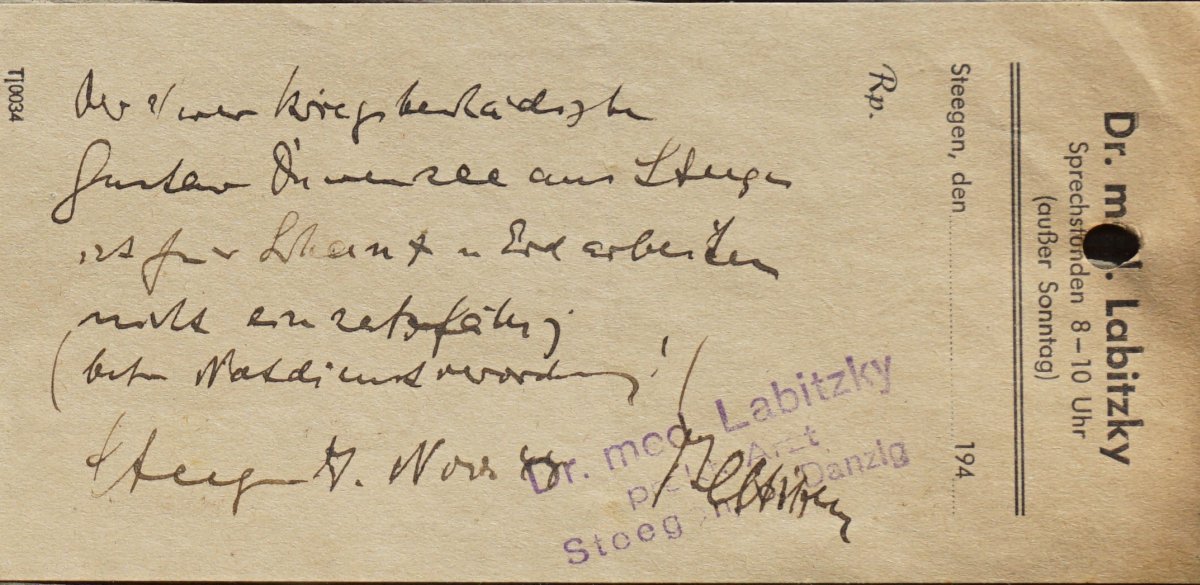 Dr. med. Labitzky
Sprechstunden 8–10 Uhr
(außer Sonntag)
Steegen, den 194
Rp.
Der Kriegsbeschädigte
Gustav aus Steegen
ist für Schanz u Erdarbeiten
nicht einsatzfähig
(betr Notdienstverordnung!)
Steegen Nov
Dr. med. Labitzky
Arzt
Steegen Danzig
Tj0034